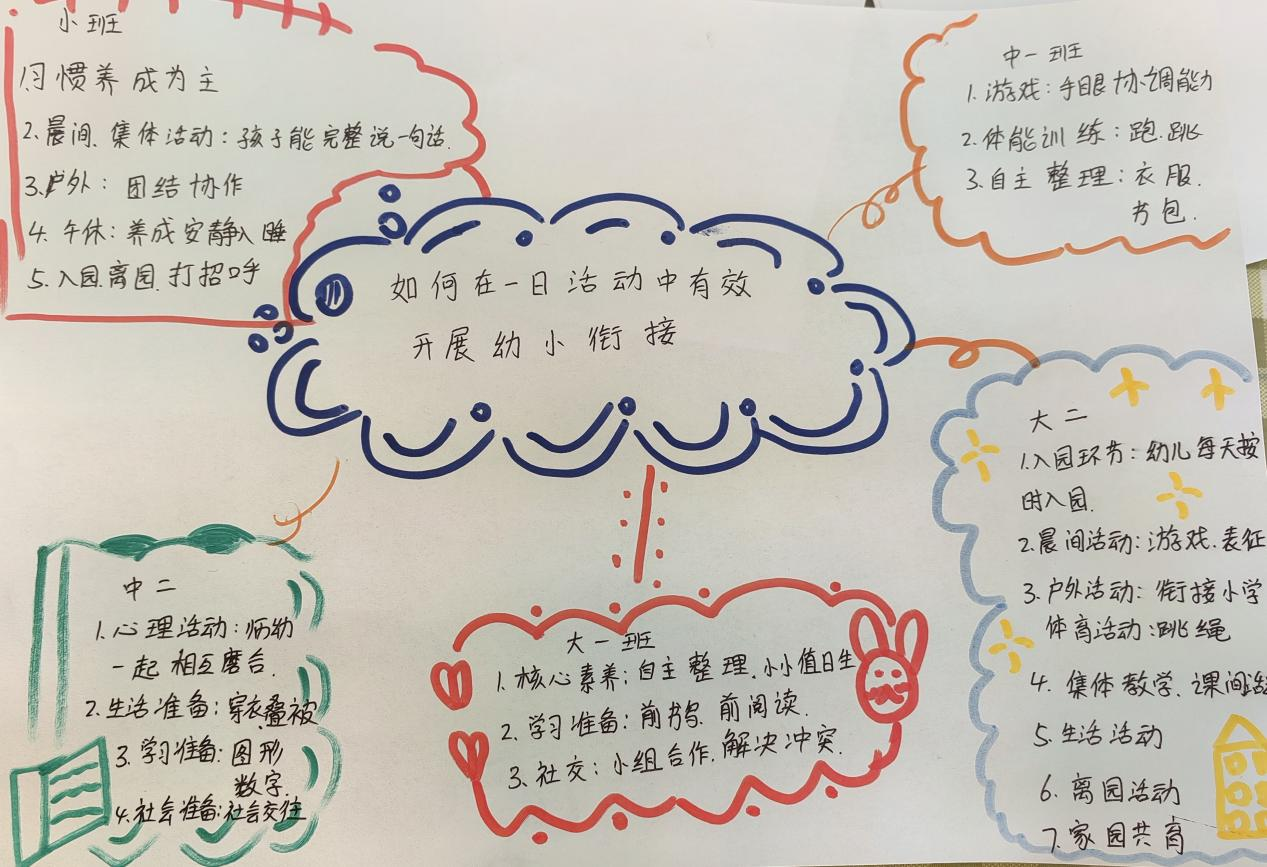 小班
习惯养成为主
2.晨间、集体活动：孩子能完整说一句话.
3.户外：团结协作
4.午休：养成安静入睡
5.入园.离园.打招呼
如何在一日活动中有效
开展幼小衔接
中一班
1.游戏：手眼协调能力
2.体能训练：跑.跳
3.自主整理：衣服.
书包.
大二
1.入园环节：幼儿每天按
时入园.
2.晨间活动：游戏.表征
3.户外活动：衔接小学
体育活动：跳绳
4.集体教学.课间活
5.生活活动
6.离园活动
7.家园共育
中二
1.心理活动：师幼
一起相互磨合.
2.生活准备：穿衣.叠被
3.学习准备：图形
数字.
4.社会准备：社会交往
大一班
1.核心素养：自主整理.小小值日生
2.学习准备：前书写.前阅读.
3.社交：小组合作.解决冲突.